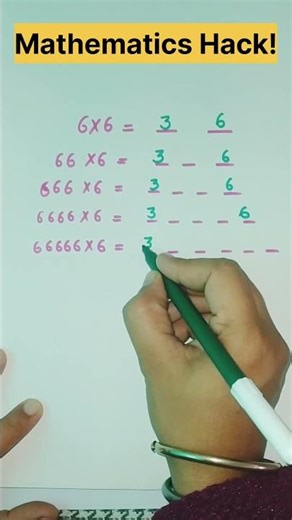 Mathematics Hack!
6×6 = 3 6
66 ×6 = 3 _ 6
666 ×6 = 3 _ _ 6
6666 ×6 = 3 _ _ _ 6
66666 ×6 = 3 _ _ _ _ _